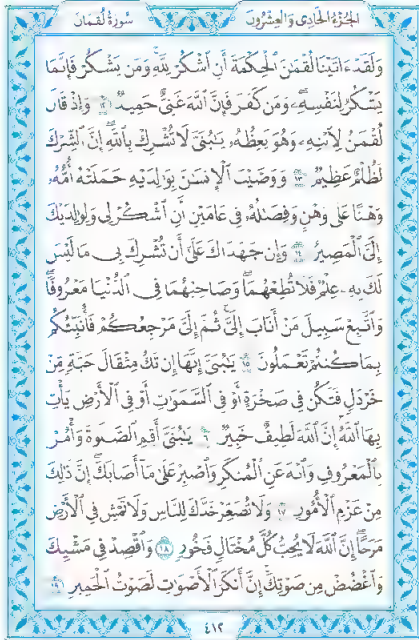 الجزء الحادي والعشرون
سورة لقمان
ولقد ءاتينا لقمن الحكمة أن اشكر لله ومن يشكر فإنما
يشكر لنفسه ومن كفر فإن الله غني حميد ١٢ وإذ قال
لقمن لابنه وهو يعظه يبني لا تشرك بالله إن الشرك
لظلم عظيم ١٣ ووصينا الإنسن بولديه حملته أمه
وهنا على وهن وفصله في عامين أن اشكر لي ولولديك
إلي المصير ١٤ وإن جهداك على أن تشرك بي ما ليس
لك به علم فلا تطعهما وصاحبهما في الدنيا معروفا
واتبع سبيل من أناب إلي ثم إلي مرجعكم فأنبئكم
بما كنتم تعملون ١٥ يبني إنها إن تك مثقال حبة من
خردل فتكن في صخرة أو في السموت أو في الأرض يأت
بها الله إن الله لطيف خبير ١٦ يبني أقم الصلوة وأمر
بالمعروف وانه عن المنكر واصبر على ما أصابك إن ذلك
من عزم الأمور ١٧ ولا تصعر خدك للناس ولا تمش في الأرض
مرحا إن الله لا يحب كل مختال فخور ١٨ واقصد في مشيك
واغضض من صوتك إن أنكر الأصوت لصوت الحمير ١٩
٤١٢